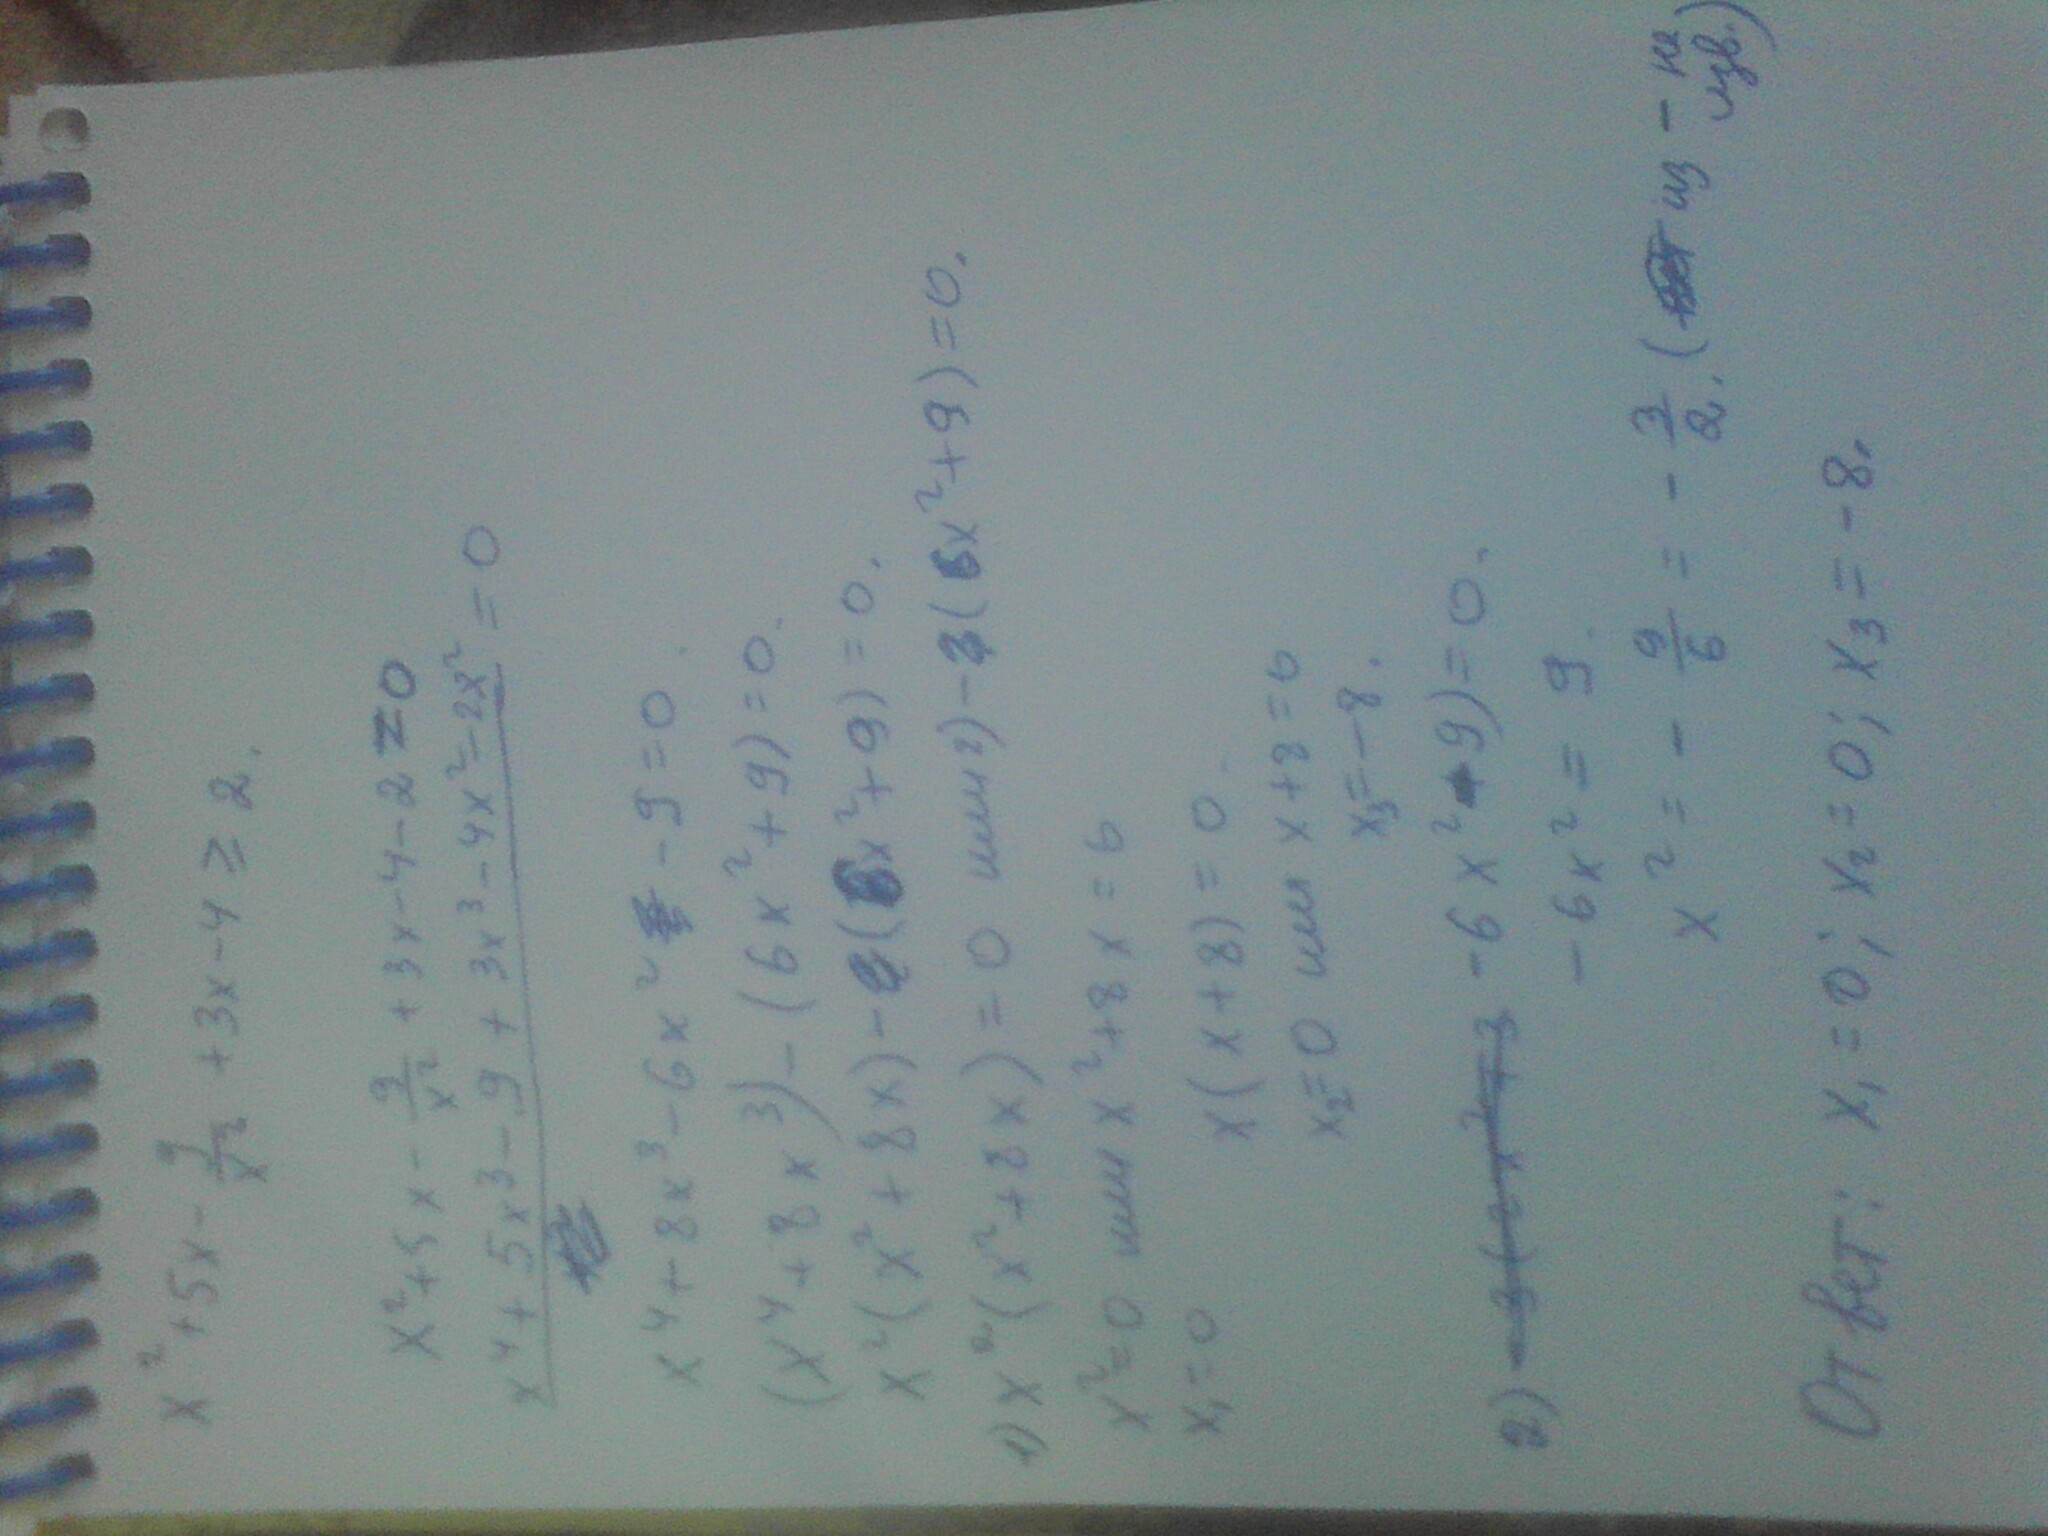 x² + 5x - 9/x² + 3x - 4 ≥ 2.
x² + 5x - 9/x² + 3x - 4 - 2 = 0
x⁴ + 5x³ - 9 + 3x³ - 4x² - 2x² = 0
x⁴ + 8x³ - 6x² - 9 = 0.
(x⁴ + 8x³) - (6x² + 9) = 0.
x²(x² + 8x) - (6x² + 9) = 0.
1) x²(x² + 8x) = 0 или 2) - (6x² + 9) = 0.
x² = 0 или x² + 8x = 6
x₁ = 0 x(x + 8) = 0.
x₂ = 0 или x + 8 = 6
x₃ = -8.
2) -6x² + 9) = 0.
-6x² = 9.
x² = - 9/6 = - 3/2. ( из - не изв.)
Ответ: x₁ = 0; x₂ = 0; x₃ = -8.